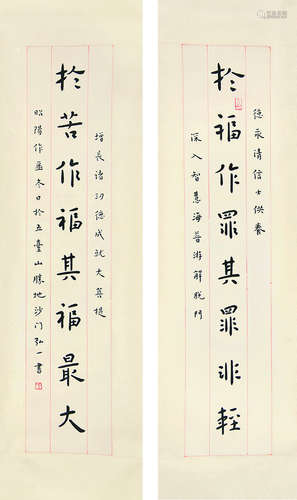 德永清信士供養
於福作罪其罪非輕
深入智慧海普游解脫門
增長諸功德成就大菩提
於苦作福其福最大
昭陽作噩木日於五臺山勝地沙门弘一書